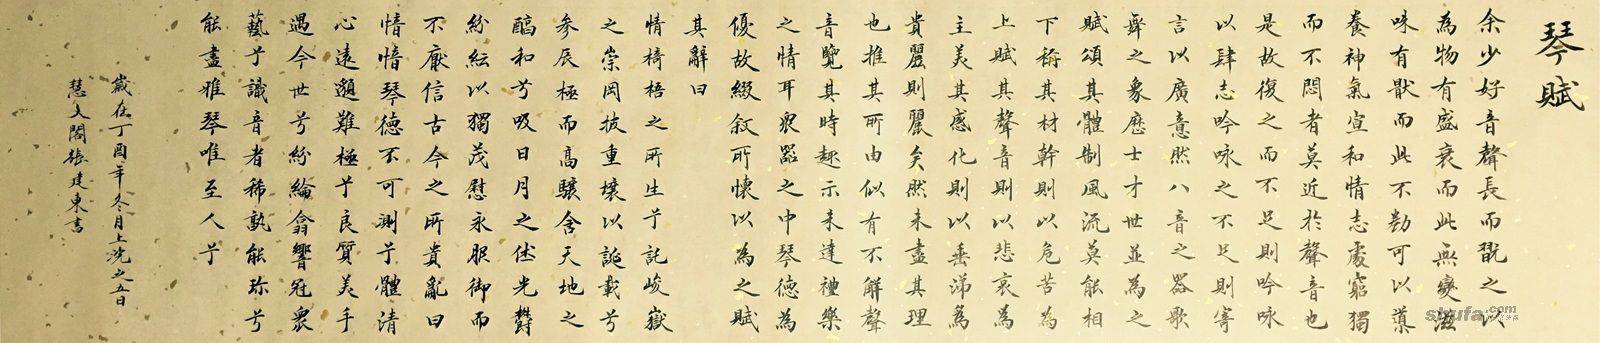 琴賦
余少好音聲長而翫之以
為物有盛衰而此無變滋
味有猒而此不勌可以導
養神氣宣和情志處窮獨
而不悶者莫近於聲音也
是故復之而不足則吟咏
以肆志吟咏之不足則寄
言以廣意然八音之器歌
舞之象歷士才世並為之
賦頌其體制風流莫能相
下稱其材幹則以危苦為
上賦其聲音則以悲哀為
主美其感化則以垂涕為
貴麗則麗矣然未盡其理
也推其所由似有不解聲
音覽其時趣示未達禮樂
之情耳衆器之中琴德為
優故綴叙所懷以為之賦
其辭曰
情椅梧之所生兮託峻嶽
之崇岡披重壤以誕載兮
參辰極而高驤含天地之
醕和兮吸日月之休光鬱
紛紜以獨茂慰永服御而
不厭信古今之所貴亂曰
愔愔琴德不可測兮體清
心遠邈難極兮良質美手
遇今世兮紛綸翕響冠衆
藝兮識音者稀孰能珍兮
能盡雅琴唯至人兮
歲在丁酉年冬月上浣之五日
慧文閣張建東書